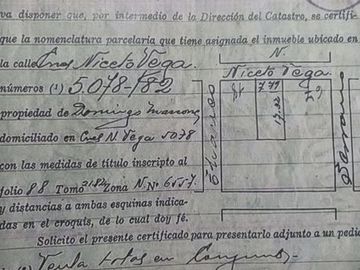 va disponer que, por intermedio de la Dirección del Catastro, se certifi-
que la nomenclatura parcelaria que tiene asignada el inmueble ubicado en
la calle Cnel Niceto Vega N.
números (¹) 5078-/82 Niceto Vega
propiedad de Domingo
domiciliado en Cnel N. Vega 5078
con las medidas de título inscripto al
folio 88 Tomo 2182 Zona N. Nº 6557
y distancias a ambas esquinas indica-
das en el croquis, de lo cual doy fé.
Solicito el presente certificado para presentarlo adjunto a un pedi
Venta lotes en
Serrano